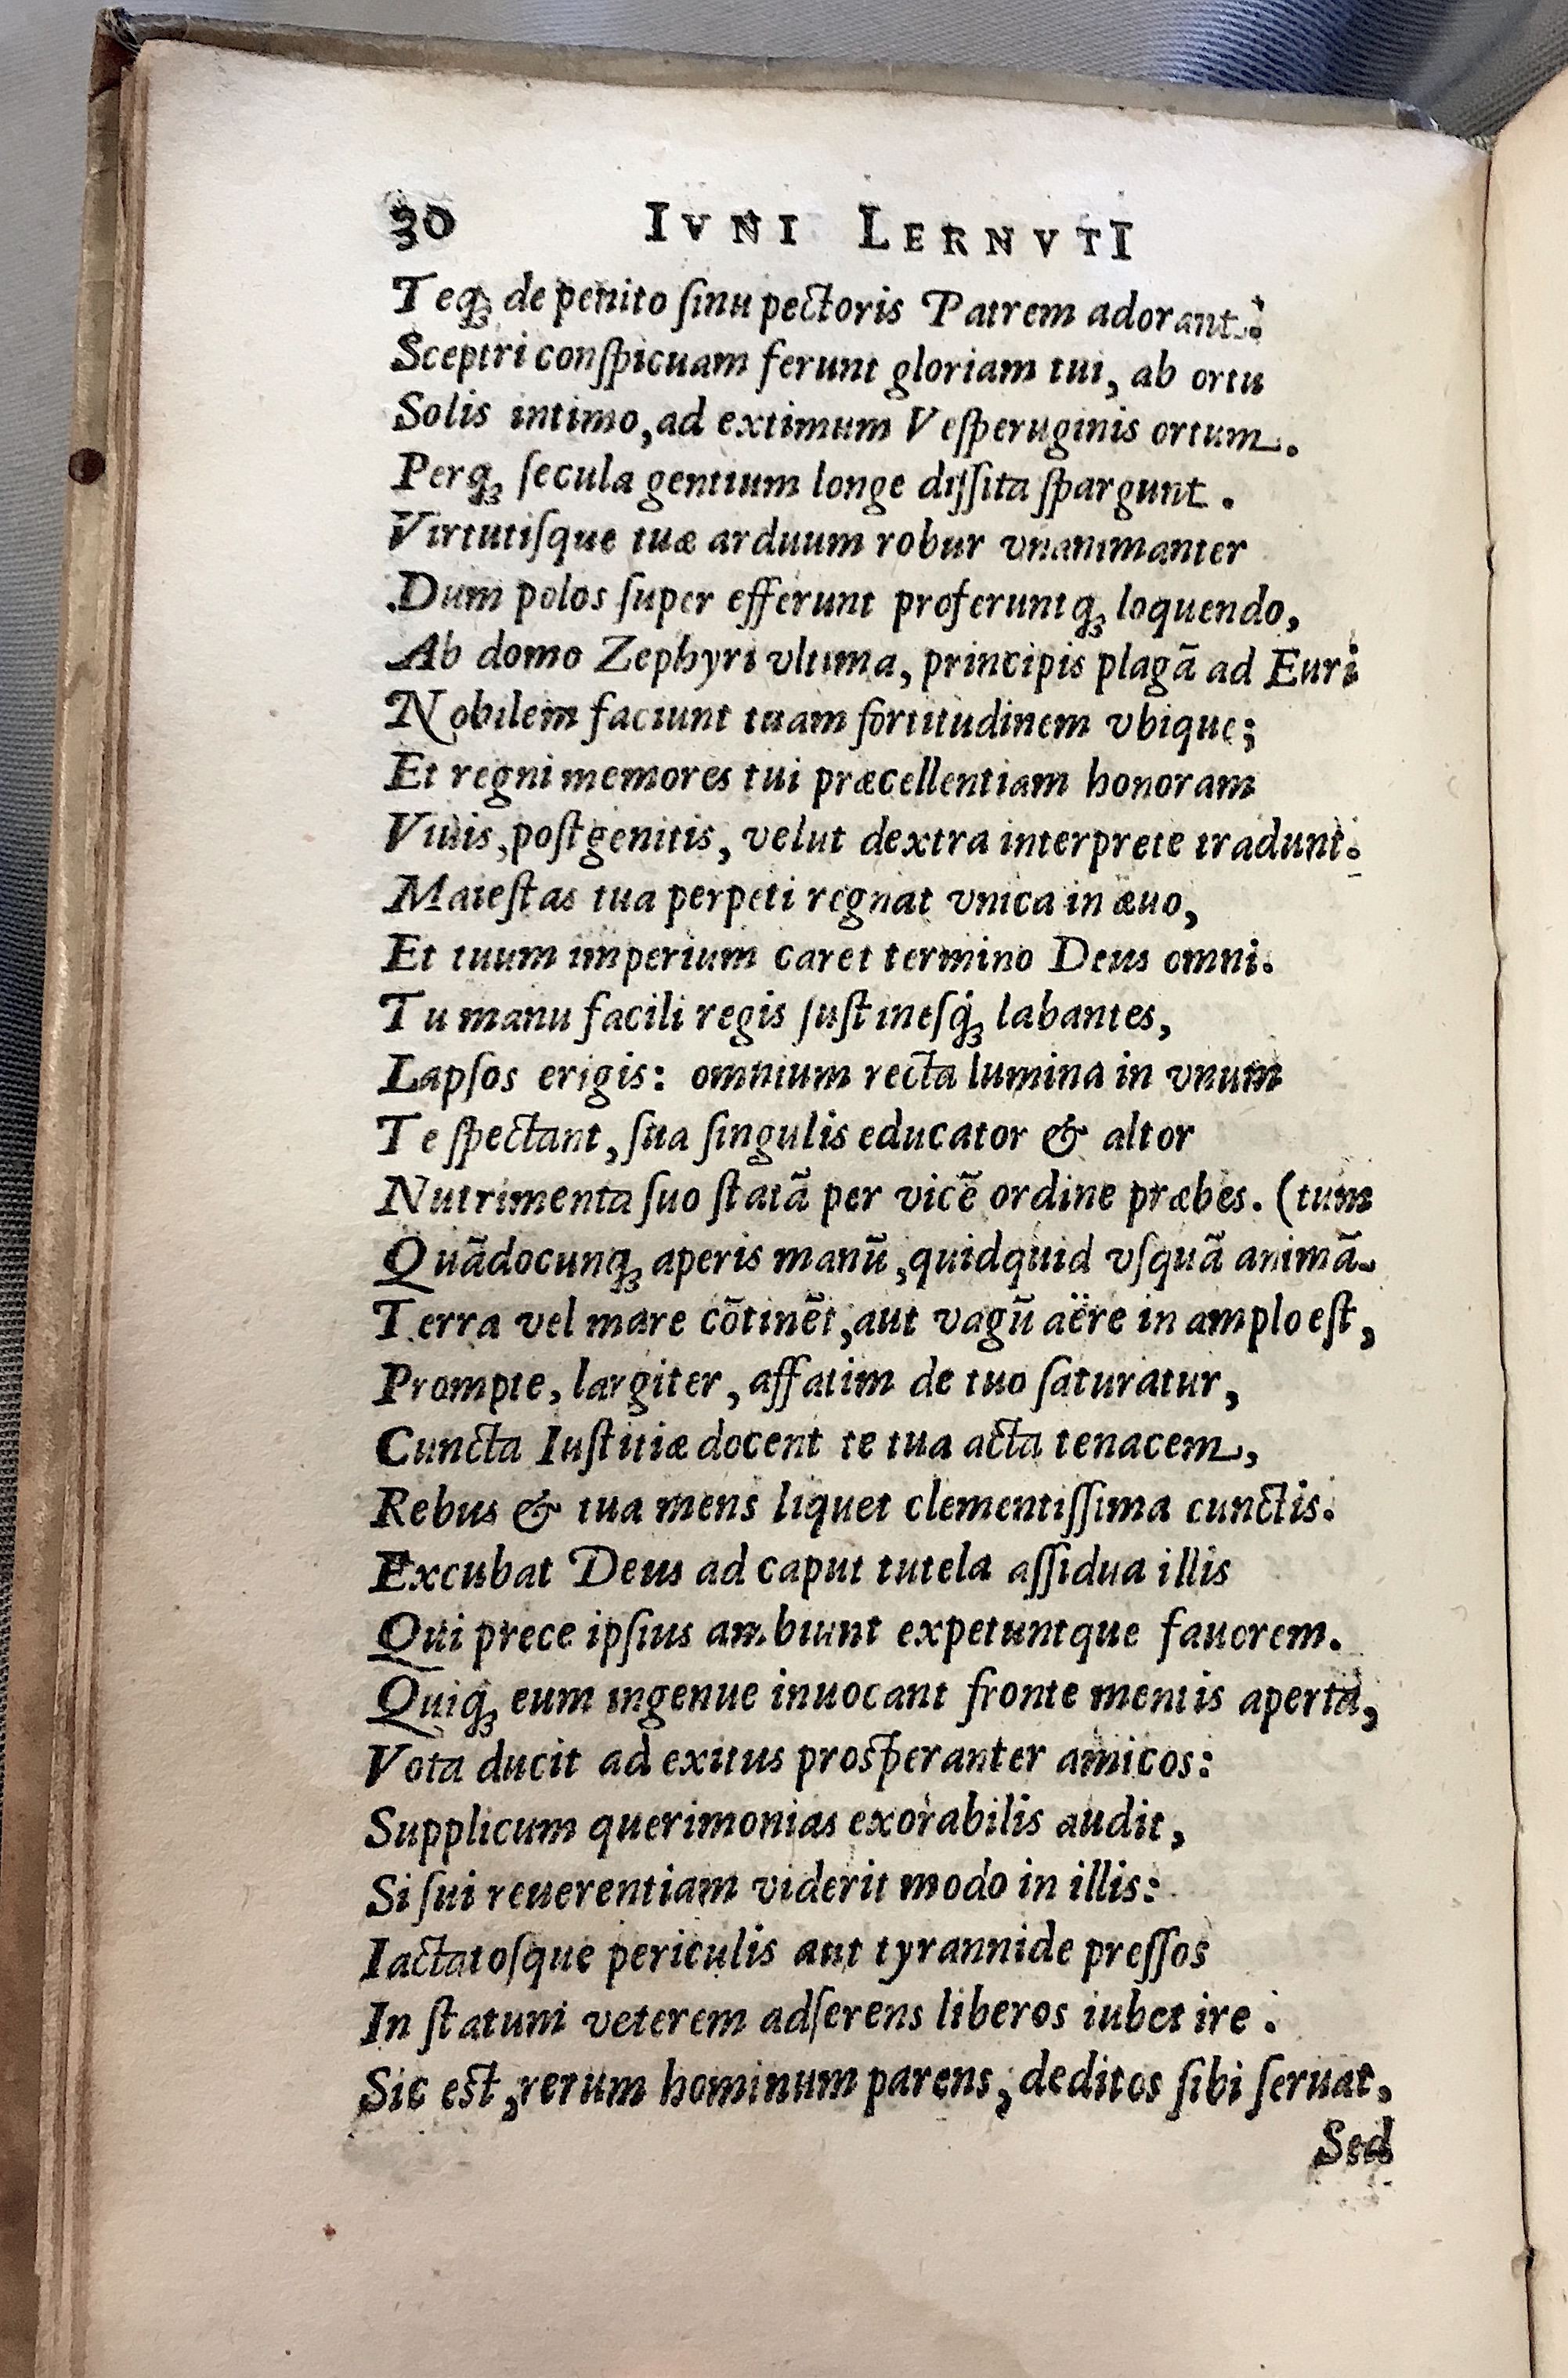 30 IVNI LERNVTI
Teq́ꝫ de penito ſinu pectoris Patrem adorant.
Sceptri conſpicuam ferunt gloriam tui, ab ortu
Solis intimo, ad extimum Veſperuginis ortum.
Perq́ꝫ ſecula gentium longe diſſita ſpargunt.
Virtutiſque tuæ arduum robur vnanimanter
Dum polos ſuper efferunt proferuntq́ꝫ loquendo,
Ab domo Zephyri vltima, principis plagã ad Euri
Nobilem faciunt tuam fortitudinem vbique;
Et regni memores tui præcellentiam honoram
Viuis, poſtgenitis, velut dextra interprete tradunt.
Maieſtas tua perpeti regnat vnica in æuo,
Et tuum imperium caret termino Deus omni.
Tu manu facili regis ſuſtineſq́ꝫ labantes,
Lapſos erigis: omnium recta lumina in vnum
Te ſpectant, ſua ſingulis educator & altor
Nutrimenta ſuo ſtatã per vicẽ ordine præbes. (tum
Quãdocunq́ꝫ aperis manũ, quidquid vſquã animã-
Terra vel mare cõtinẽt, aut vagũ aëre in amplo eſt,
Prompte, largiter, affatim de tuo ſaturatur,
Cuncta Iuſtitiæ docent te tua acta tenacem,
Rebus & tua mens liquet clementiſſima cunctis.
Excubat Deus ad caput tutela aſſidua illis
Qui prece ipſius ambiunt expetuntque fauorem.
Quiq́ꝫ eum ingenue inuocant fronte mentis aperta,
Vota ducit ad exitus proſperanter amicos:
Supplicum querimonias exorabilis audit,
Si ſui reuerentiam viderit modo in illis:
Iactatoſque periculis aut tyrannide preſſos
In ſtatum veterem adſerens liberos iubet ire.
Sic eſt, rerum hominum parens, deditos ſibi ſeruat,
Sed